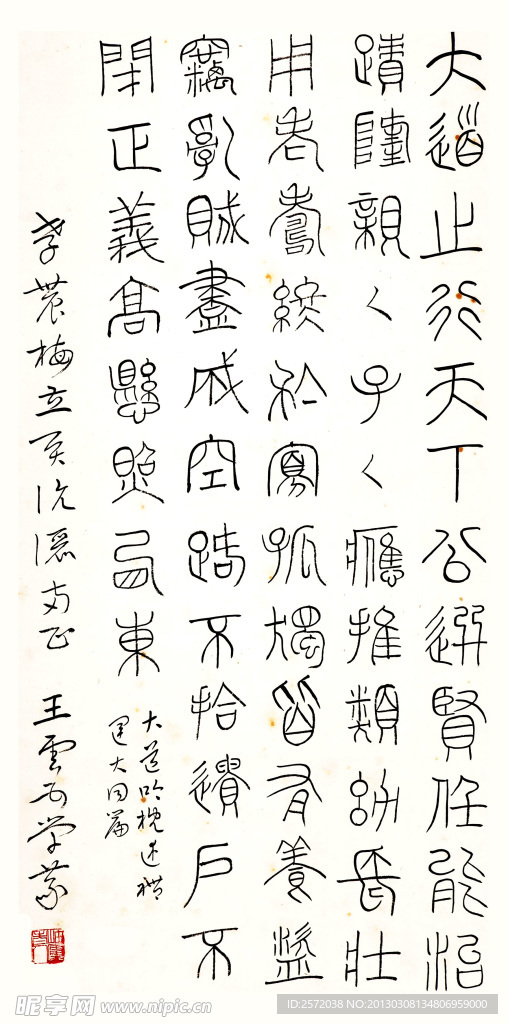 大道之行天下公選賢任能治
蹟隆親〻子〻應推類幼長壯
用老壽終矜寡孤獨皆有養盜
竊亂賊盡成空路不拾遺戶不
閉正義高懸照西東
大道吟概述禮
運大同篇
王雲五學篆
昵享网 www.nipic.cn
ID:2572038 NO:20130308134806959000